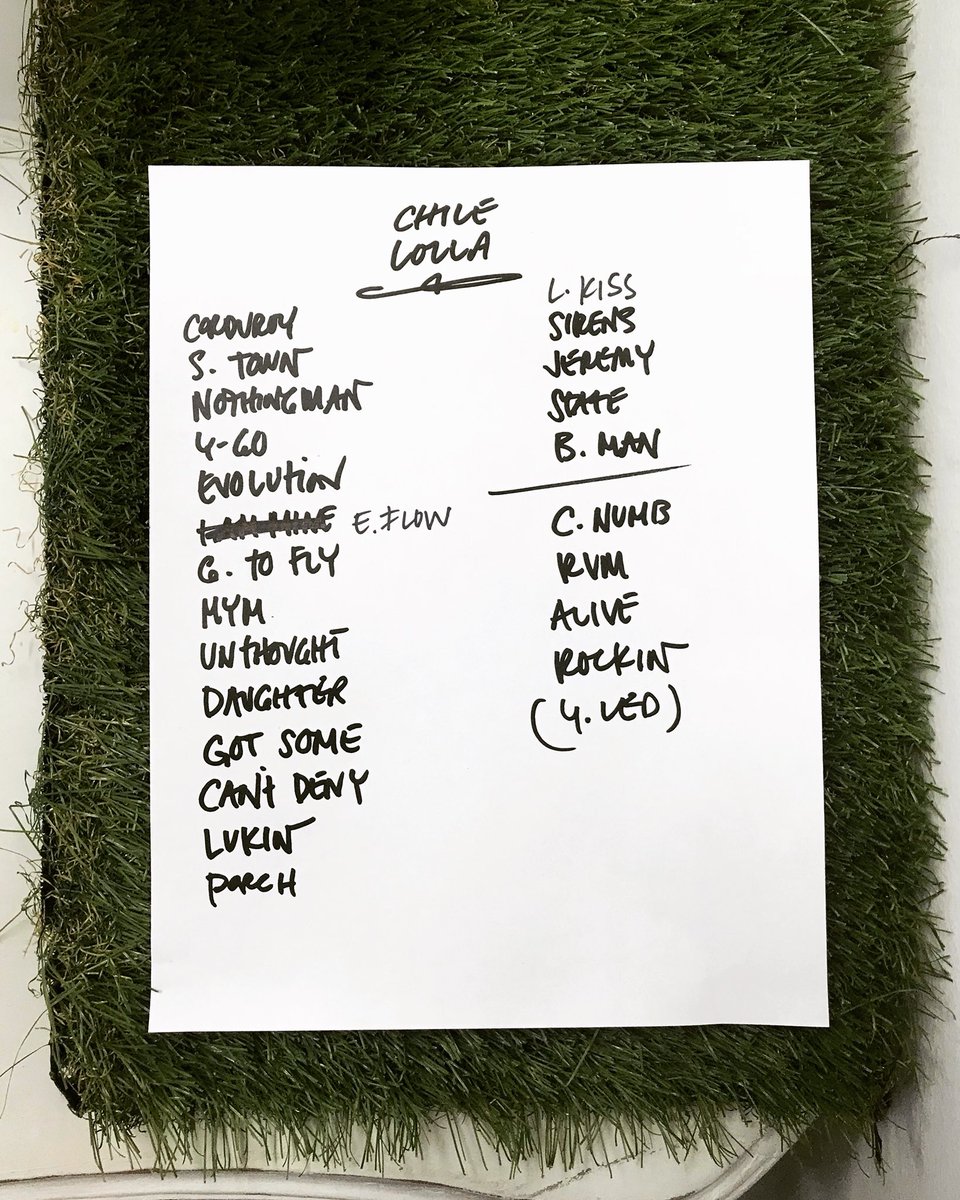 CHILE
LOLLA
CORDUROY
S. TOWN
NOTHINGMAN
4-GO
EVOLUTION
I AM MINE E. FLOW
G. TO FLY
MYM
UNTHOUGHT
DAUGHTER
GOT SOME
CAN'T DENY
LUKIN
PORCH
L. KISS
SIRENS
JEREMY
STATE
B. MAN
C. NUMB
RVM
ALIVE
ROCKIN
(Y. LED)